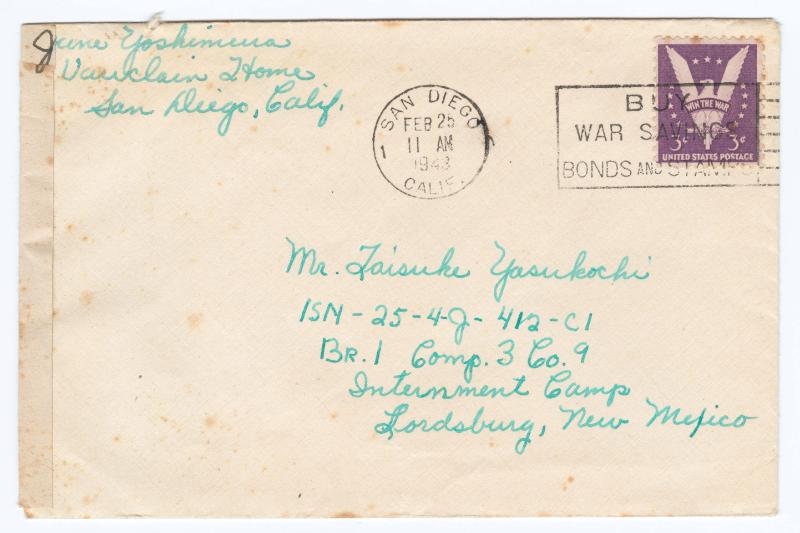 June Yoshimura
Vauclain Home
San Diego, Calif.
SAN DIEGO
1
FEB 25
11 AM
1943
CALIF.
BUY
WAR SAVINGS
BONDS AND STAMPS
WIN THE WAR
3¢ 3¢
UNITED STATES POSTAGE
Mr. Taisuke Yasukochi
ISN-25-4-J-412-C1
BR. 1 Comp. 3 Co. 9
Internment Camp
Lordsburg, New Mexico